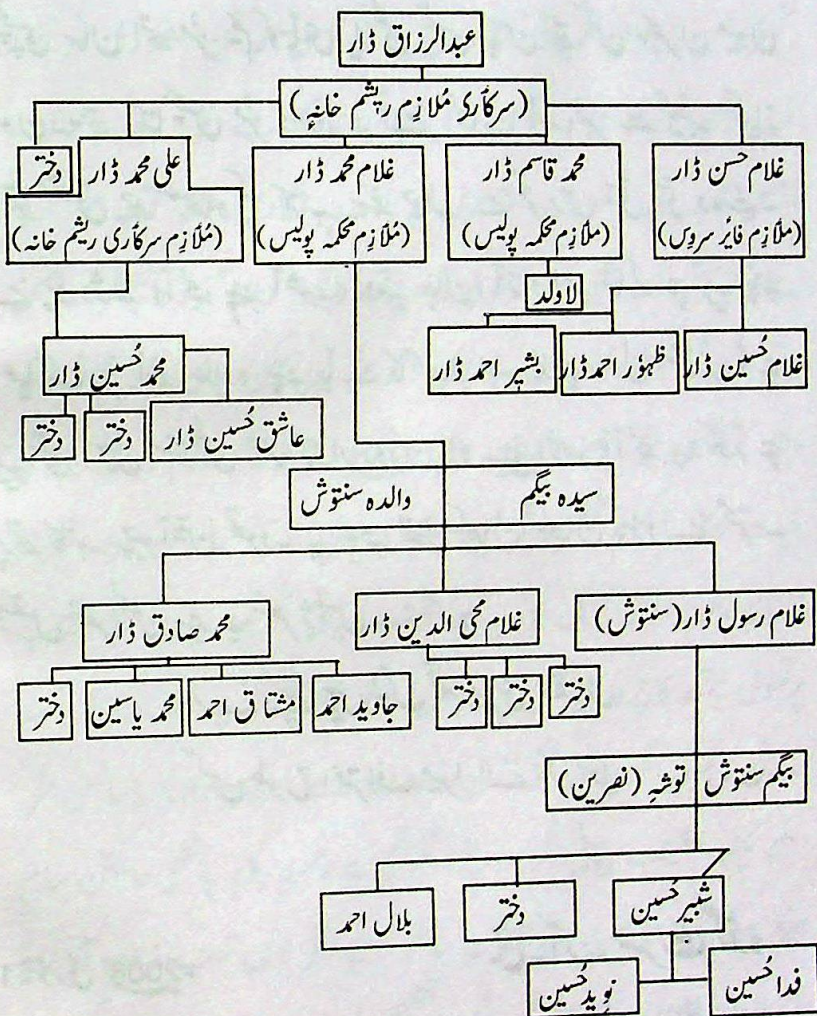 عبدالرزاق ڈار
(سرکاری مُلازِم ریشم خانہٕ)
غلام حسن ڈار
(ملازِم فائر سروس)
محمد قاسم ڈار
(ملازِم محکمہ پولیس)
غلام محمد ڈار
(مُلازِم محکمہ پولیس)
علی محمد ڈار
(مُلازِم سرکاری ریشم خانہ)
دختر
لاولد
غلام حُسین ڈار
ظہوٗر احمد ڈار
بشیر احمد ڈار
محمد حُسین ڈار
عاشق حُسین ڈار
دختر
دختر
سیدہ بیگم والدہ سنتوش
غلام رسول ڈار (سنتوش)
غلام محی الدین ڈار
محمد صادق ڈار
دختر
دختر
دختر
جاوید احمد
مشتاق احمد
محمد یاسین
دختر
بیگم سنتوش توشہِ (نصرین)
شبیر حُسین
دختر
بلال احمد
فدا حُسین
نوید حُسین